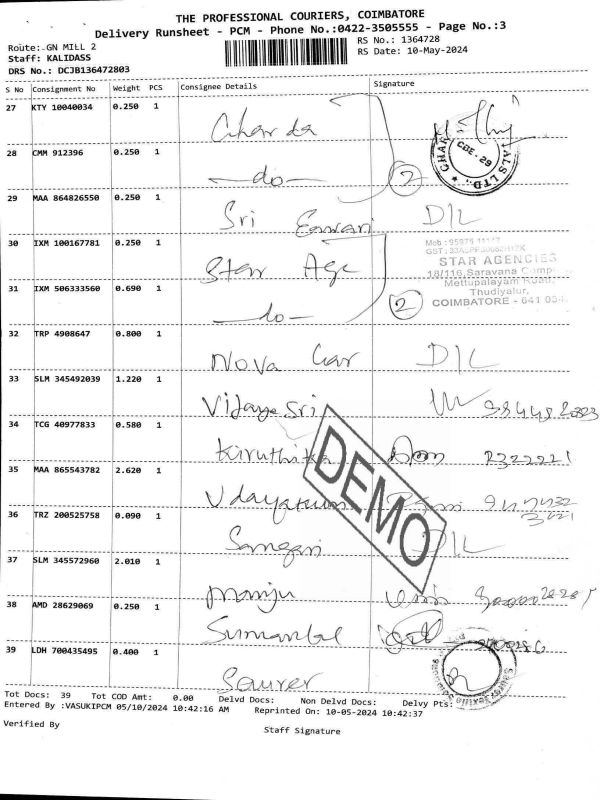 THE PROFESSIONAL COURIERS, COIMBATORE
Delivery Runsheet - PCM - Phone No.:0422-3505555 - Page No.:3
Route: GN MILL 2
RS No.: 1364728
Staff: KALIDASS
RS Date: 10-May-2024
DRS No.: DCJB136472803
S No Consignment No Weight PCS Consignee Details Signature
27 KTY 10040034 0.250 1
Charda
28 CMM 912396 0.250 1
CBE-29
-do- 2
29 MAA 864826550 0.250 1
Sri Eswari D/L
30 IXM 100167781 0.250 1
Star Age
STAR AGENCIES
18/116, Saravana Comp
Mettupalayam Road,
Thudiyalur,
COIMBATORE - 641 034.
31 IXM 506333560 0.690 1
-do- 2
32 TRP 4908647 0.800 1
Nova Car D/L
33 SLM 345492039 1.220 1
Vijaya Sri
34 TCG 40977833 0.580 1
Kiruthika 2322221
35 MAA 865543782 2.620 1
DEMO
36 TRZ 200525758 0.090 1
Sangari D/L
37 SLM 345572960 2.010 1
Manju
38 AMD 28629069 0.250 1
39 LDH 700435495 0.400 1
Saurer
Tot Docs: 39 Tot COD Amt: 0.00 Delvd Docs: Non Delvd Docs: Delvy Pts:
Entered By :VASUKIPCM 05/10/2024 10:42:16 AM Reprinted On: 10-05-2024 10:42:37
Verified By
Staff Signature